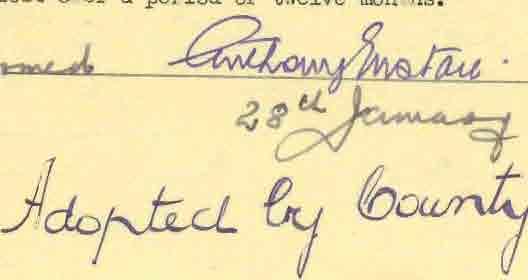 over a period of twelve months.
Anthony
28th January
Adopted by County